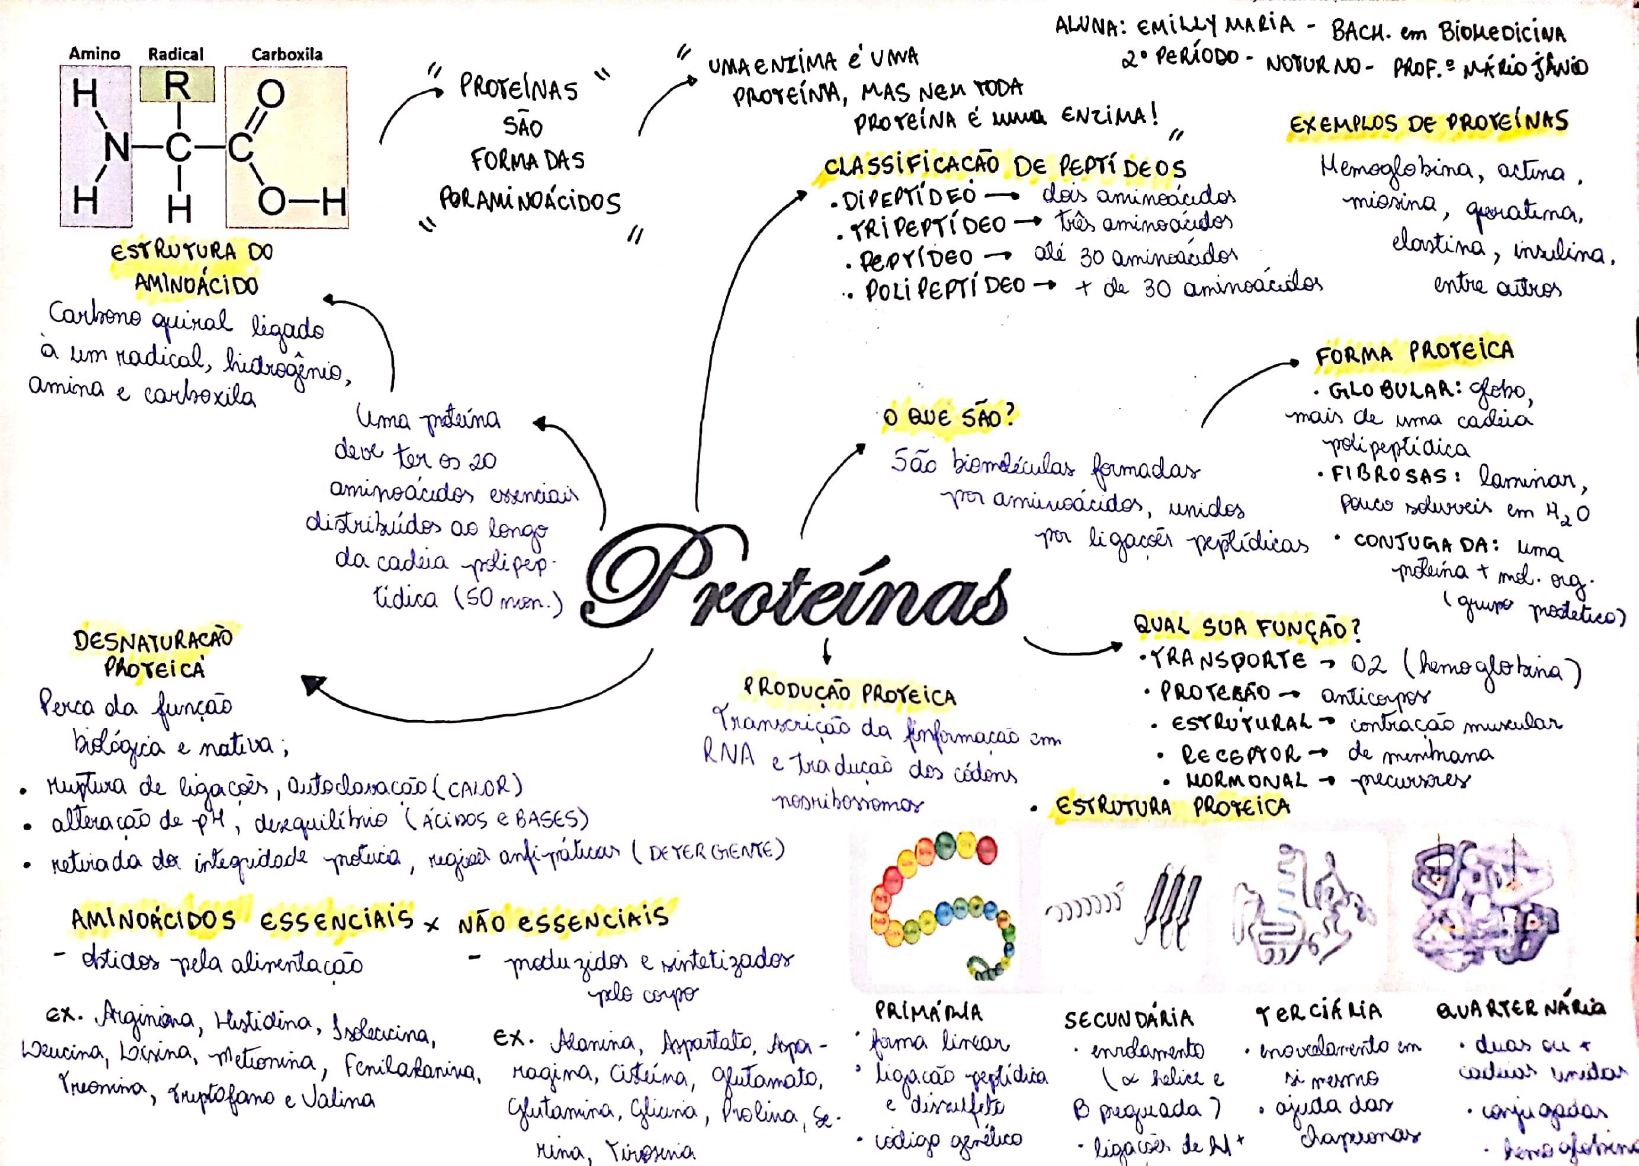 ALUNA: EMILLY MARIA - BACH. em BIOMEDICINA
2º PERÍODO - NOTURNO - PROF.º MÁRIO JÂNIO
Amino Radical Carboxila
H R O
N C C
H H O H
ESTRUTURA DO
AMINOÁCIDO
Carbono quiral ligado
à um radical, hidrogênio,
amina e carboxila
" PROTEÍNAS "
SÃO
FORMADAS
" POR AMINOÁCIDOS "
" UMA ENZIMA É UMA
PROTEÍNA, MAS NEM TODA
PROTEÍNA É uma ENZIMA! "
CLASSIFICAÇÃO DE PEPTÍDEOS
• DIPEPTÍDEO → dois aminoácidos
• TRIPEPTÍDEO → três aminoácidos
• PEPTÍDEO → até 30 aminoácidos
• POLIPEPTÍDEO → + de 30 aminoácidos
EXEMPLOS DE PROTEÍNAS
Hemoglobina, actina,
miosina, queratina,
elastina, insulina,
entre outros
FORMA PROTEICA
• GLOBULAR: globo,
mais de uma cadeia
polipeptídica
• FIBROSAS: laminar,
pouco solúveis em H2O
• CONJUGADA: uma
proteína + mol. org.
(grupo prostético)
O QUE SÃO?
São biomoléculas formadas
por aminoácidos, unidos
por ligações peptídicas
Uma proteína
deve ter os 20
aminoácidos essenciais
distribuídos ao longo
da cadeia polipep-
tídica (50 mon.)
Proteínas
DESNATURAÇÃO
PROTEICA
Perca da função
biológica e nativa;
• ruptura de ligações, autoclavação (CALOR)
• alteração de pH, desequilíbrio (ÁCIDOS e BASES)
• retirada da integridade proteica, regiões anfipáticas (DETERGENTE)
PRODUÇÃO PROTEICA
Transcrição da informação em
RNA e tradução dos códons
nos ribossomos
QUAL SUA FUNÇÃO?
• TRANSPORTE → O2 (hemoglobina)
• PROTEÇÃO → anticorpos
• ESTRUTURAL → contração muscular
• RECEPTOR → de membrana
• HORMONAL → precursores
• ESTRUTURA PROTEICA
AMINOÁCIDOS ESSENCIAIS x NÃO ESSENCIAIS
- obtidos pela alimentação
ex. Arginina, Histidina, Isoleucina,
Leucina, Lisina, Metionina, Fenilalanina,
Treonina, Triptofano e Valina
- produzidos e sintetizados
pelo corpo
ex. Alanina, Aspartato, Aspa-
ragina, Cisteína, Glutamato,
Glutamina, Glicina, Prolina, Se-
rina, Tirosina
PRIMÁRIA
• forma linear
• ligação peptídica
e dissulfeto
• código genético
SECUNDÁRIA
• enrolamento
(α hélice e
B pregueada)
• ligações de H+
TERCIÁRIA
• enovelamento em
si mesmo
• ajuda das
chaperonas
QUARTERNÁRIA
• duas ou +
cadeias unidas
• conjugadas
• hemoglobina